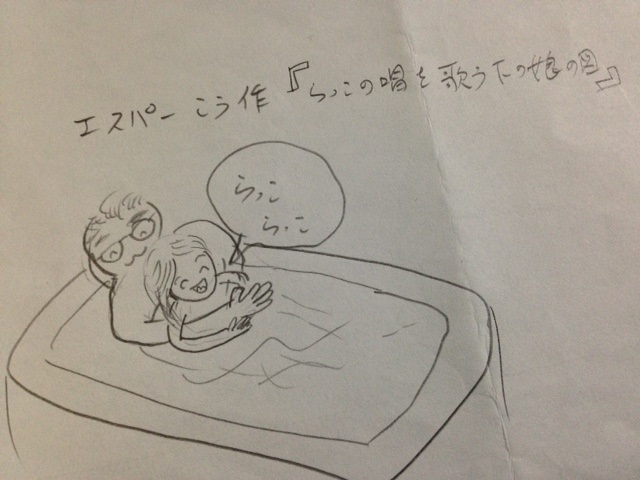 エスパーこう作『らっこの唱を歌う下の娘の図』
らっこ
らっこ